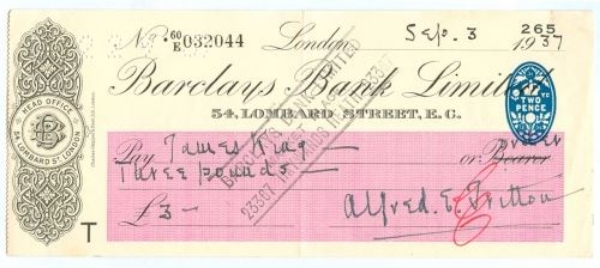 265
No. 60/E 032044 London, Sep. 3 1937
Barclays Bank Limited
54, LOMBARD STREET, E.C.
HEAD OFFICE
54 LOMBARD ST. LONDON
TWO PENCE
Pay James King — or order Bearer
Three pounds —
£3 —
Alfred. E. Fritton
T
BARCLAYS BANK LIMITED
23367